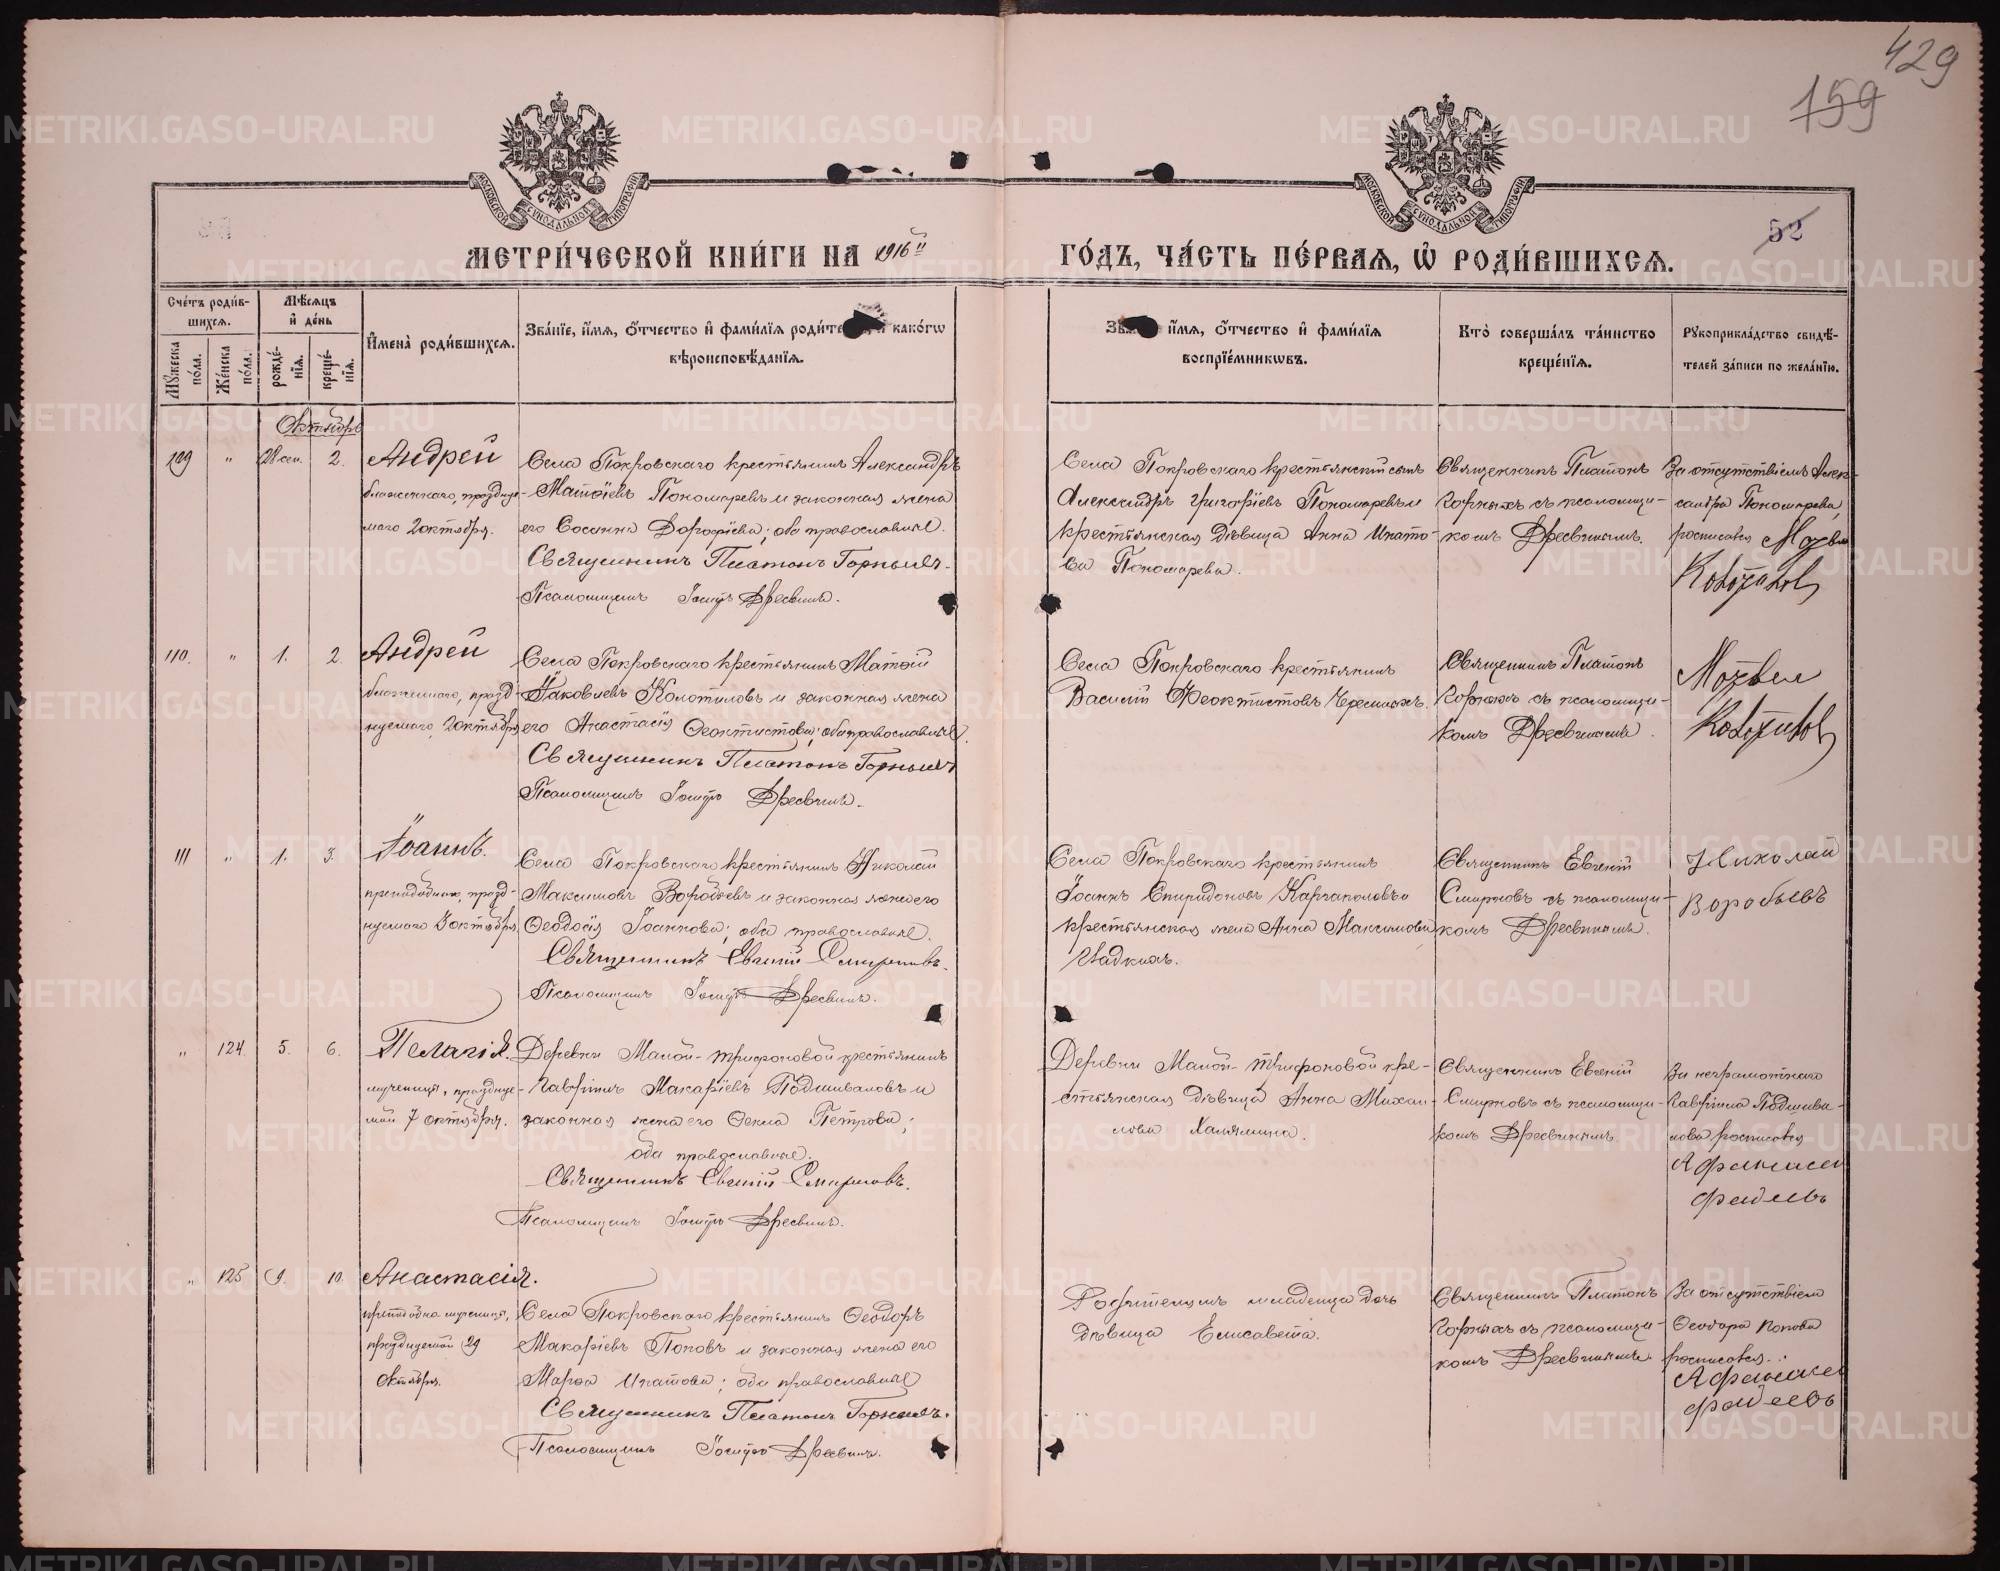 429
159
52
МЕТРИ́ЧЕСКОЙ КНИ́ГИ НА 1916й ГО́ДЪ, ЧА́СТЬ ПЕ́РВАЯ, Ѡ РОДИ́ВШИХСЯ.
Сче́тъ роди́в-
шихся.
Мѣ́сяцъ
и де́нь
Мужеска по́ла.
Же́нска по́ла.
рожде́-
нія.
креще́-
нія.
Имена̀ роди́вшихся.
Зва́ніе, и́мя, о́тчество и фами́лія роди́те и како́гѡ
вѣроисповѣ́данія.
и́мя, о́тчество и фами́лія
воспріе́мникѡвъ.
Кто̀ соверша́лъ та́инство
креще́нія.
Рукоприкла́дство свидѣ́-
телей за́писи по жела́нію.
Октябрь
109 " 28 сен. 2. Андрей
блаженнаго, праздну-
маго 2 октября.
Села Покровскаго крестьянинъ Александръ
Матѳіевъ Пономаревъ и законная жена
его Сосанна Дороѳіева; оба православные.
Священникъ Платонъ Горныхъ.
Псаломщикъ Іосифъ Дресвинъ.
Села Покровскаго крестьянскій сынъ
Александръ Григоріевъ Пономаревъ и
крестьянская дѣвица Анна Ипато-
ва Пономарева.
Священникъ Платонъ
Горныхъ съ псаломщи-
комъ Дресвинымъ.
За отсутствіемъ Алек-
сандра Пономарева,
росписался Матвей
110. " 1. 2. Андрей
блаженнаго, празд-
нуемаго, 2 октября
Села Покровскаго крестьянинъ Матѳій
Іаковлевъ Колотиловъ и законная жена
его Анастасія Ѳеоктистова; оба православные.
Священникъ Платонъ Горныхъ
Псаломщикъ Іосифъ Дресвинъ.
Села Покровскаго крестьянинъ
Василій Ѳеоктистовъ Черемныхъ.
Священникъ Платонъ
Горныхъ съ псаломщи-
комъ Дресвинымъ.
Матвей
111 " 1. 3. Іоаннъ.
преподобнаго, празд-
нуемаго 3 октября
Села Покровскаго крестьянинъ Николай
Максимовъ Воробьевъ и законная жена его
Ѳеодосія Іоаннова; оба православные.
Священникъ Евгеній Смирновъ.
Псаломщикъ Іосифъ Дресвинъ.
Села Покровскаго крестьянинъ
Іоаннъ Спиридоновъ Каргаполовъ и
крестьянская жена Анна Максимова
Гладкихъ.
Священникъ Евгеній
Смирновъ съ псаломщи-
комъ Дресвинымъ.
Николай
Воробьевъ
" 124. 5. 6. Пелагія.
мученицы, праздну-
мой 7 октября.
Деревни Малой-Трифоновой крестьянинъ
Гавріилъ Макаріевъ Подшиваловъ и
законная жена его Ѳекла Петрова;
оба православные.
Священникъ Евгеній Смирновъ.
Псаломщикъ Іосифъ Дресвинъ.
Деревни Малой-Трифоновой кре-
стьянская дѣвица Анна Михаи-
лова Халямина.
Священникъ Евгеній
Смирновъ съ псаломщи-
комъ Дресвинымъ
За неграмотнаго
Гавріила Подшива-
лова росписался
Афанасей
Фадеевъ
" 125 9. 10. Анастасія.
преподобно мученицы,
празднуемой 29
Октября.
Села Покровскаго крестьянинъ Ѳеодоръ
Макаріевъ Поповъ и законная жена его
Марѳа Ипатова; оба православные
Священникъ Платонъ Горныхъ.
Псаломщикъ Іосифъ Дресвинъ.
Родительницы младенца дочь
дѣвица Елисавета.
Священникъ Платонъ
Горныхъ съ псаломщи-
комъ Дресвинымъ.
За отсутствіем
Ѳеодора Попова
росписался..
Афанасей
Фадеевъ
METRIKI.GASO-URAL.RU